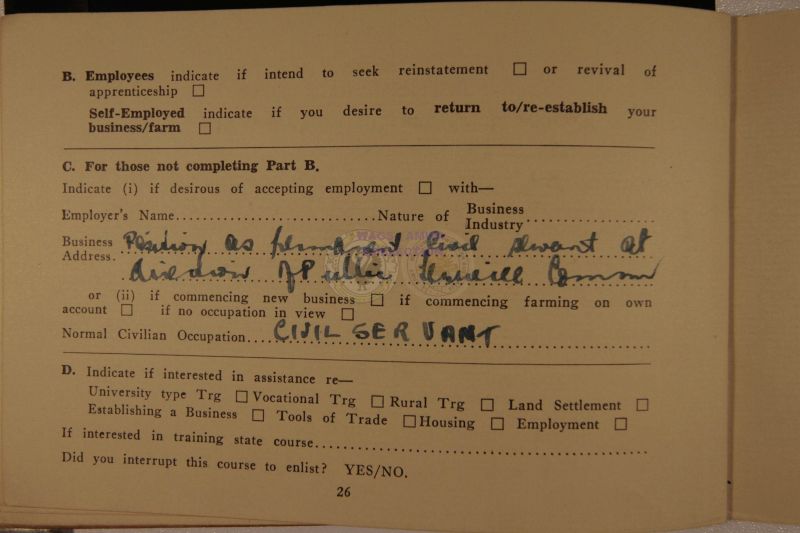 B. Employees indicate if intend to seek reinstatement □ or revival of
apprenticeship □
Self-Employed indicate if you desire to return to/re-establish your
business/farm □
C. For those not completing Part B.
Indicate (i) if desirous of accepting employment □ with—
Employer's Name..............................Nature of Business
Industry..................
Business Address. Position as permanent Civil Servant at
discretion of Public Service Comm
or (ii) if commencing new business □ if commencing farming on own
account □ if no occupation in view □
Normal Civilian Occupation.... CIVIL SERVANT
D. Indicate if interested in assistance re—
University type Trg □ Vocational Trg □ Rural Trg □ Land Settlement □
Establishing a Business □ Tools of Trade □ Housing □ Employment □
If interested in training state course..................................................
Did you interrupt this course to enlist? YES/NO.
26